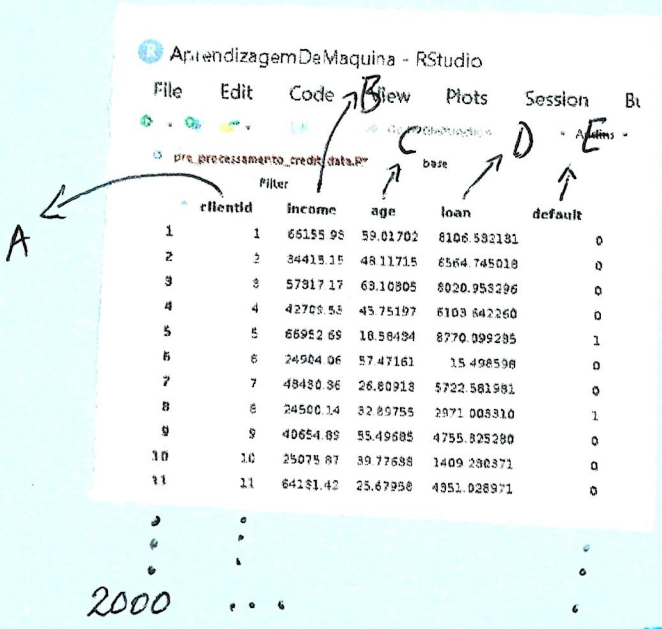 AprendizagemDeMaquina - RStudio
File Edit Code View Plots Session Bu
B
C D Addins E
pre_processamento_credit_data.R* base
Filter
A
clientid income age loan default
1 1 66155.93 59.01702 8106.532131 0
2 2 34415.15 48.11715 6564.745018 0
3 3 57317.17 63.10805 8020.953296 0
4 4 42709.53 45.75197 6103.642260 0
5 5 66952.69 18.58434 8770.099235 1
6 6 24904.06 57.47161 15.498598 0
7 7 48430.36 26.80913 5722.581981 0
8 8 24500.14 32.89755 2971.003310 1
9 9 40654.89 55.49685 4755.825280 0
10 10 25075.87 39.77638 1409.230371 0
11 11 64131.42 25.67958 4351.028971 0
2000 ...